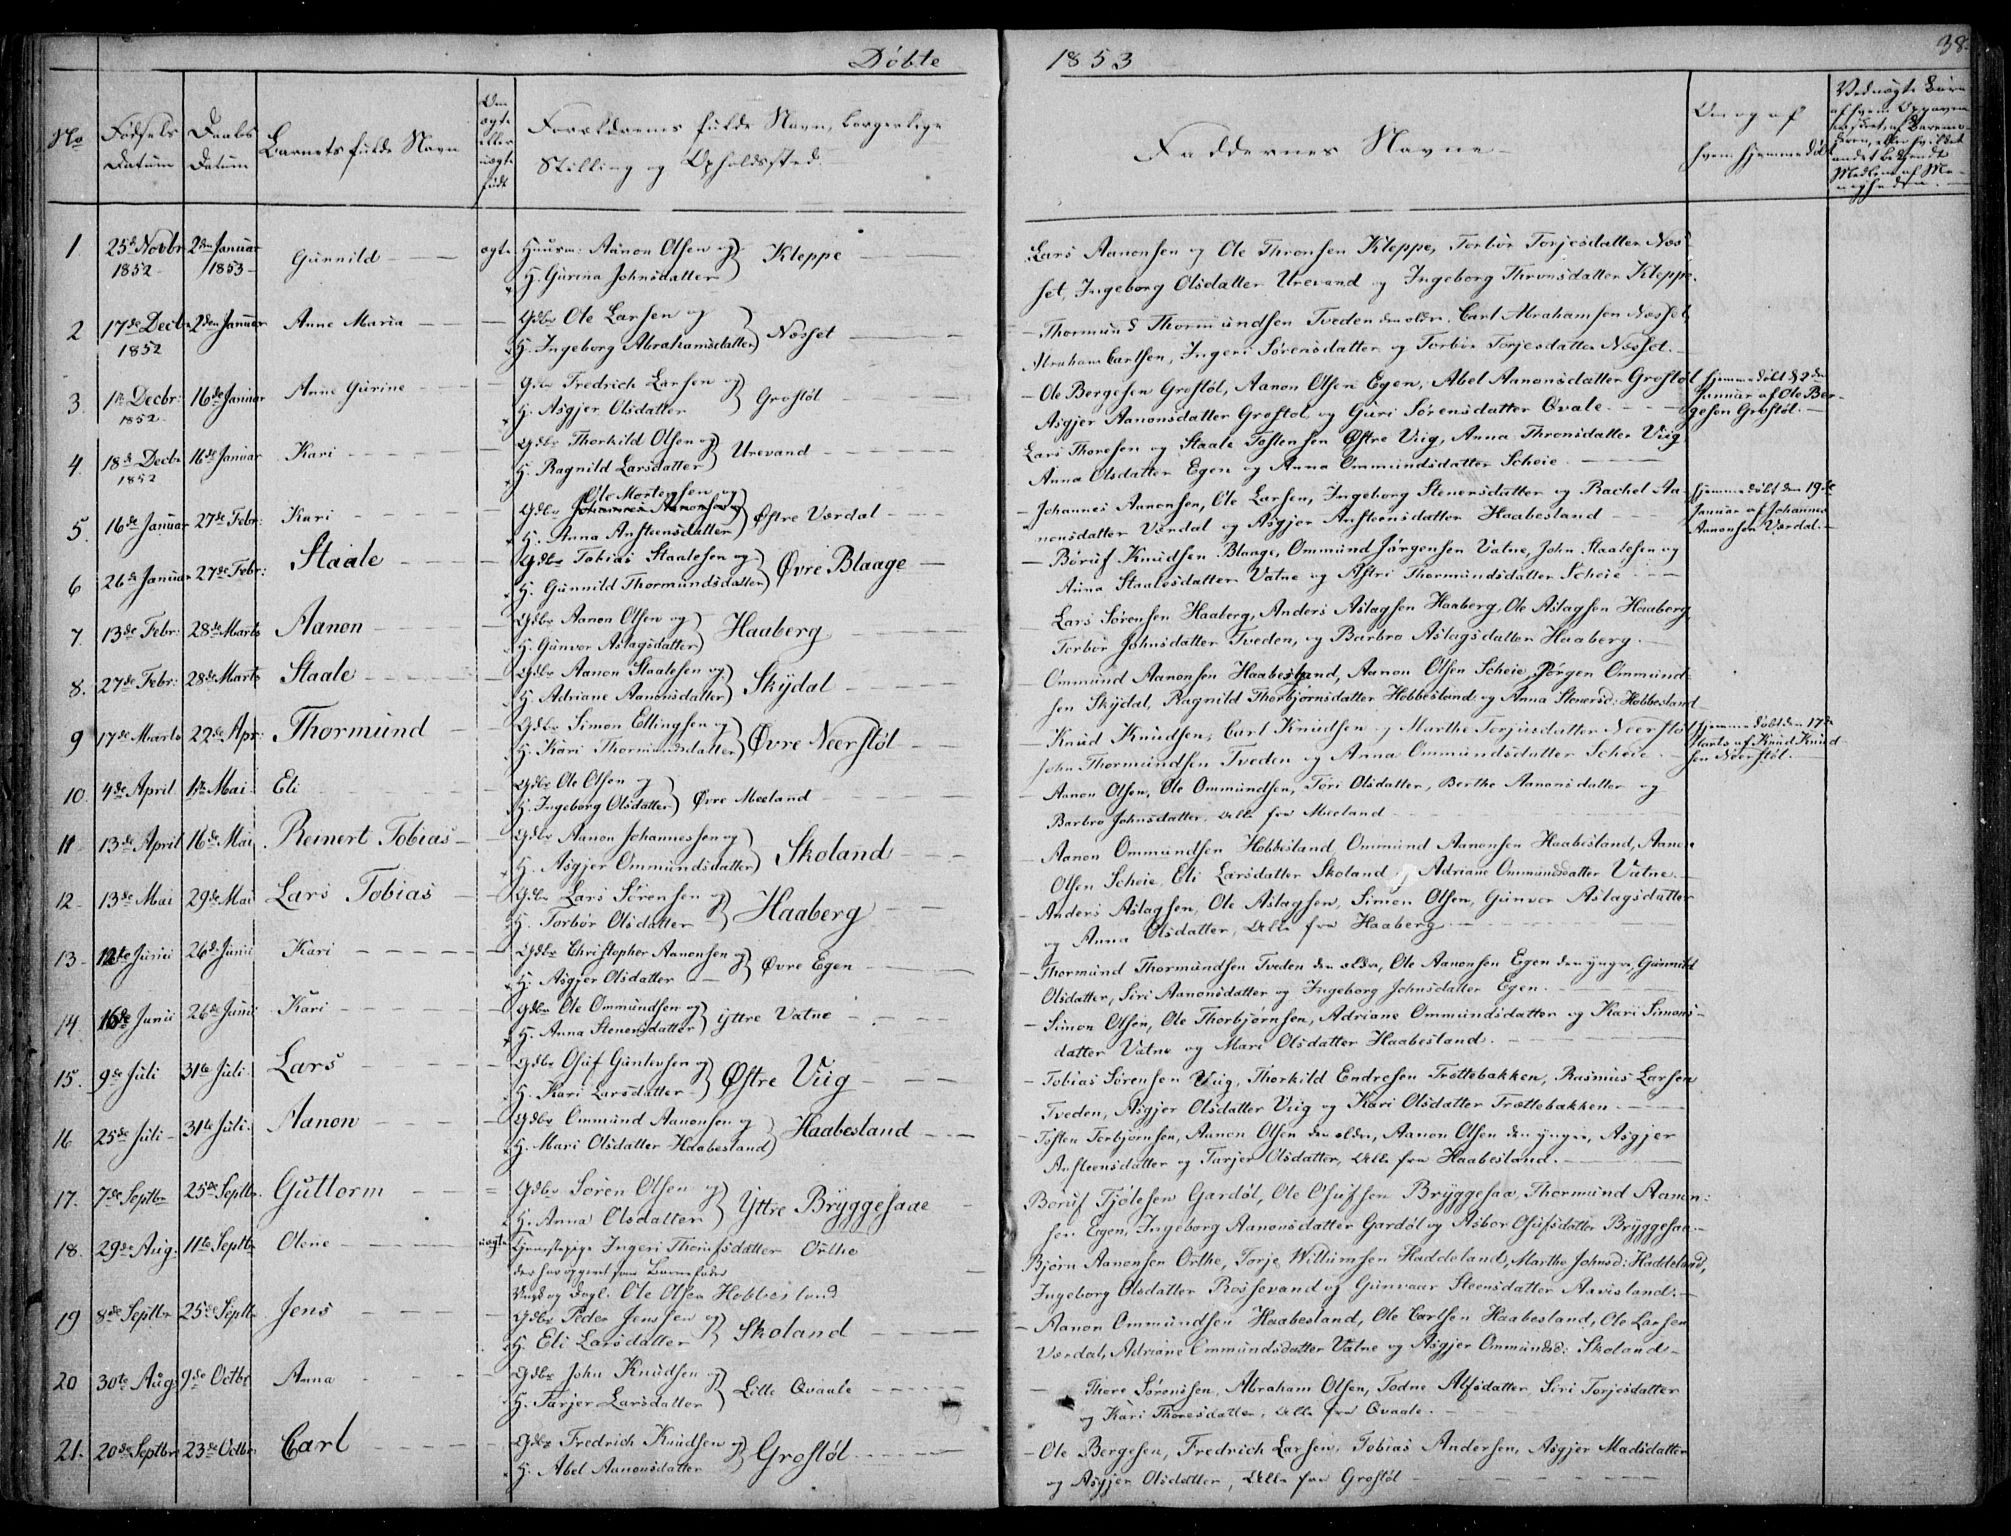 Døbte
1853
38.
No
Fødsels
Datum
Daabs
Datum
Barnets fulde Navn
Om
ægte
eller
uægte
født
Forældrenes fulde Navn, borgerlige
Stilling og Opholdssted.
Faddernes Navne
Om og af
hvem hjemmedøbt
Ved uægte Børn
1 25de Novbr 2den Januar Gunnild ægte Huusm: Aanon Olsen og Kleppe
1852 1853 H. Gurina Johnsdatter
Lars Aanonsen og Ole Thronsen Kleppe, Torbør Torjesdatter Næs-
set, Ingeborg Olsdatter Urevand og Ingeborg Thronsdatter Kleppe.
2 17de Decbr 2den Januar Anne Maria Gdbr Ole Larsen og Næsset
1852 H. Ingeborg Abrahamsdatter
Thormund Thormundsen Tveden den eldre, Carl Abrahamsen Næsset,
Abraham Carlsen, Ingeri Sørensdatter og Torbør Torjesdatter Næsset.
3. 1te Decbr: 16de Januar Anne Gurine Gdbr Fredrich Larsen og Grostøl
1852. H. Asgjer Olsdatter
Ole Bergesen Grostøl, Aanon Olsen Egen, Abel Aanonsdatter Grostøl
Asgjer Aanonsdatter Grostøl og Guri Sørensdatter Qvale.
hjemmedøbt d 2den
Januar af Ole Ber-
gesen Grostøl.
4. 18de Decbr 16de Januar Kari Gdbr Thorkild Olsen og Urevand
1852 H. Ragnild Larsdatter
Lars Thoresen og Staale Tostensen Østre Viig, Anna Thronsdatter Viig
Anna Olsdatter Egen og Anna Ommundsdatter Scheie.
5. 16de Januar 27de Febr: Kari Gdbr Ole Mortensen og Østre Værdal
Johannes Aanonsen og
H. Anna Ansteensdatter
Johannes Aanonsen, Ole Larsen, Ingeborg Stenersdatter og Rachel Aa-
nonsdatter Værdal og Asgjer Ansteensdatter Haabesland
hjemmedøbt den 19de
Januar af Johannes
Aanonsen Værdal.
6 26de Januar 27de Febr: Staale Gdbr Tobias Staalesen og Øvre Blaage
H. Gunnild Thormundsdatter
Børuf Knudsen Blaage, Ommund Jørgensen Vatne, John Staalesen og
Anna Staalesdatter Vatne og Astri Thormundsdatter Scheie
7. 13de Febr: 28de Marts Aanon Gdbr Aanon Olsen og Haaberg
H. Gunvor Aslagsdatter
Lars Sørensen Haaberg, Anders Aslagsen Haaberg, Ole Aslagsen Haaberg,
Torbør Johnsdatter Tveden, og Barbro Aslagsdatter Haaberg.
8. 27de Febr: 28de Marts Staale Gdbr Aanon Staalesen og Skÿdal
H. Adriane Aanonsdatter
Ommund Aanonsen Haabesland, Aanon Olsen Scheie, Jørgen Ommund-
sen Skÿdal, Ragnild Thorbjørnsdatter Hobbesland og Anna Stenersd: Hobbesland
9 17de Marts 22de Apr: Thormund Gdbr Simon Ellingsen og Øvre Neerstøl
H. Kari Thormundsdatter
Knud Knudsen, Carl Knudsen og Marthe Torjusdatter Neerstøl
John Thormundsen Tveden og Anna Ommundsdatter Scheie.
hjemmedøbt den 17de
Marts af Knud Knud-
sen Neerstøl.
10. 4de April 1te Mai Eli Gdbr Ole Olsen og Øvre Meeland
H. Ingeborg Olsdatter
Aanon Olsen, Ole Ommundsen, Tori Olsdatter, Berthe Aanonsdatter og
Barbro Johnsdatter, Alle fra Meeland
11 13de April 16de Mai Reinert Tobias Gdbr Aanon Johannessen og Skoland
H. Asgjer Ommundsdatter
Aanon Ommundsen Hobbesland, Ommund Aanonsen Haabesland, Aanon
Olsen Scheie, Eli Larsdatter Skoland og Adriane Ommundsdatter Vatne.
12. 13de Mai 29de Mai Lars Tobias Gdbr Lars Sørensen og Haaberg
H. Torbør Olsdatter
Anders Aslagsen, Ole Aslagsen, Simon Olsen, Gunvor Aslagsdatter
og Anna Olsdatter, Alle fra Haaberg.
13 12te Junii 26de Junii Kari Gdbr Christopher Aanonsen og Øvre Egen
H. Asgjer Olsdatter
Thormund Thormundsen Tveden den eldre, Ole Aanonsen Egen den yngre, Gunnild
Olsdatter, Siri Aanonsdatter og Ingeborg Johnsdatter Egen.
14. 16de Junii 26de Junii Kari Gdbr Ole Ommundsen og ÿttre Vatne
H. Anna Stenersdatter
Simon Olsen, Ole Thorbjørnsen, Adriane Ommundsdatter og Kari Simons-
datter Vatne og Mari Olsdatter Haabesland.
15. 9de Juli 31te Juli Lars Gdbr Osuf Guntevsen og Østre Viig
H. Kari Larsdatter
Tobias Sørensen Viig, Thorkild Endresen Trøttebakken, Rasmus Larsen
Tveden, Asgjer Olsdatter Viig og Kari Olsdatter Trøttebakken.
16 25de Juli 31te Juli. Aanon Gdbr Ommund Aanonsen og Haabesland
H. Mari Olsdatter Haabesland
Tosten Torbjørnsen, Aanon Olsen den eldre, Aanon Olsen den yngre, Asgjer
Ansteensdatter og Turjer Olsdatter, Alle fra Haabesland.
17. 7de Septbr 25de Septbr. Guttorm Gdbr Søren Olsen og Yttre Brÿggesaae
H. Anna Olsdatter
Børuf Tjølesen Gardøl, Ole Osufsen Brÿggesaa, Thormund Aanon-
sen Egen, Ingeborg Aanonsdatter Gardøl og Asbor Osufsdatter Brÿggesaa.
18. 29de Aug: 11te Septbr Olene uægte Tjenestepige Ingeri Thomasdatter Orthe
der har opgivet som Barnefader
Ungk og Dagl. Ole Olsen Hobbesland
Bjørn Aanonsen Orthe, Torje Willumsen Haddeland, Marthe Johnsd: Haddeland,
Ingeborg Olsdatter Rossevand og Gunvaar Steensdatter Aavisland.
19 8de Septbr 25de Septbr Jens Gdbr Peder Jenssen og Skoland
H. Eli Larsdatter
Aanon Ommundsen Haabesland, Ole Carlsen Haabesland, Ole Larsen
Værdal, Adriane Ommundsdatter Vatne og Asgjer Ommundsd: Skoland
20 30te Aug: 9de Octbr Anna Gdbr John Knudsen og Lille Qvaale
H. Turjer Larsdatter
Thore Sørensen, Abraham Olsen, Todne Alfsdatter, Siri Torjesdatter
og Kari Thoresdatter, Alle fra Qvaale.
21. 20de Septbr 23de Octbr. Carl Gdbr Fredrich Knudsen og Grostøl.
H. Abel Aanonsdatter
Ole Bergesen, Fredrich Larsen, Tobias Andersen, Asgjer Madsdatter
og Asgjer Olsdatter, Alle fra Grostøl